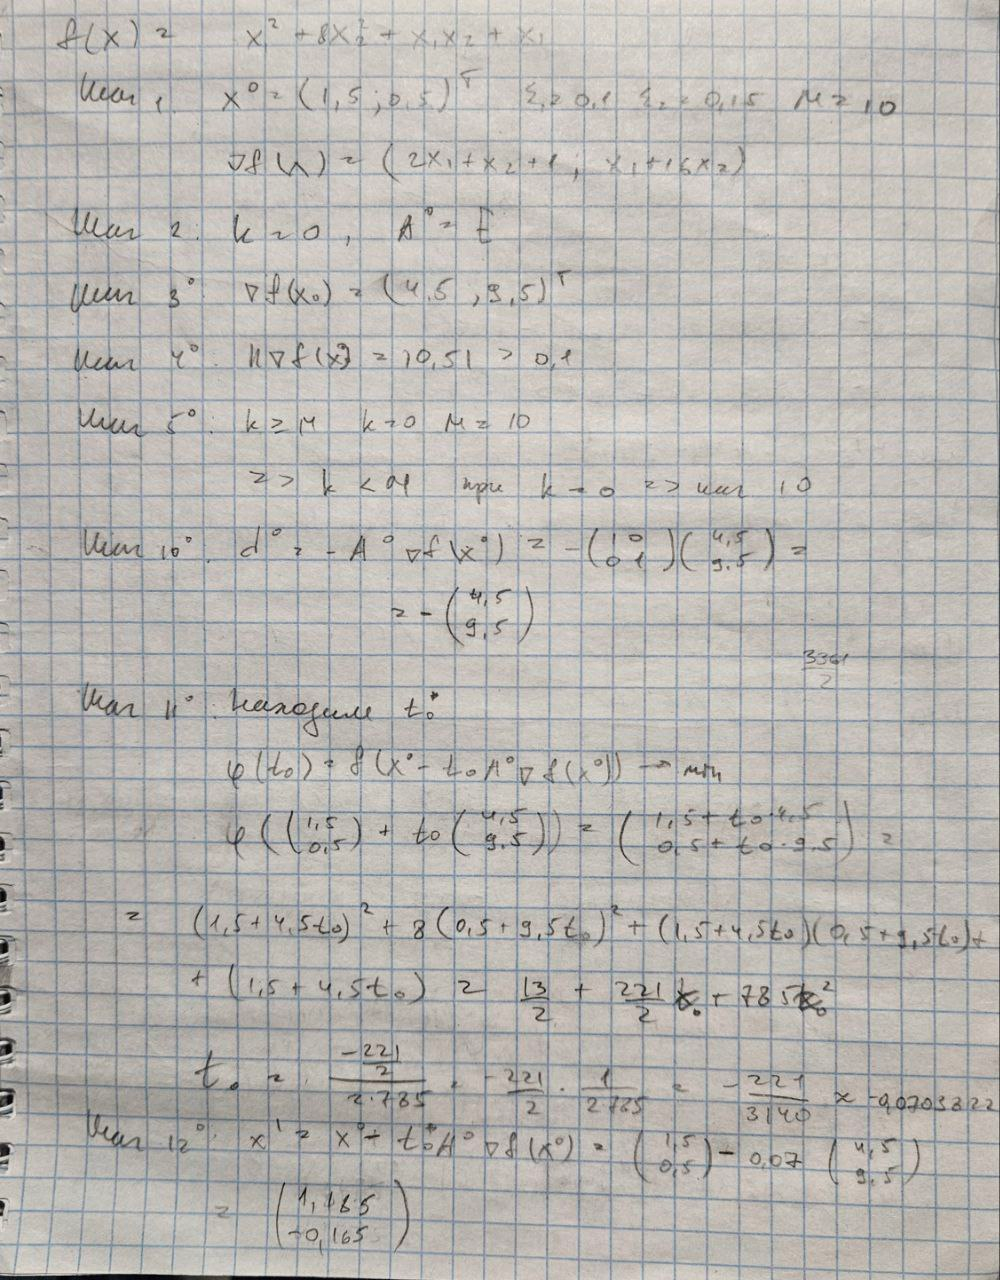 f(x) = x₁² + 8x₂² + x₁x₂ + x₁
Шаг 1. x⁰ = (1,5 ; 0,5)ᵀ ε₁ = 0,1 ε₂ = 0,15 M = 10
∇f(x) = (2x₁ + x₂ + 1 ; x₁ + 16x₂)
Шаг 2. k = 0, A⁰ = E
Шаг 3° ∇f(x₀) = (4,5 , 9,5)ᵀ
Шаг 4° ||∇f(x⁰)|| = 10,51 > 0,1
Шаг 5°: k ≥ M k = 0 M = 10
=> k < M при k = 0 => шаг 10
Шаг 10°. d⁰ = - A⁰ ∇f(x⁰) = -(1 0; 0 1)(4,5; 9,5) =
= -(4,5; 9,5)
3361/2
Шаг 11°. Находим t₀*
φ(t₀) = f(x⁰ - t₀A⁰∇f(x⁰)) → min
φ((1,5; 0,5) + t₀(4,5; 9,5)) = (1,5 + t₀·4,5; 0,5 + t₀·9,5) =
= (1,5 + 4,5t₀)² + 8(0,5 + 9,5t₀)² + (1,5 + 4,5t₀)(0,5 + 9,5t₀) +
+ (1,5 + 4,5t₀) = 13/2 + 221/2 t₀ + 785t₀²
t₀ = (-221/2)/(2·785) = -221/2 · 1/(2·785) = -221/3140 ≈ -0,0703822
Шаг 12°. x¹ = x⁰ + t₀*A⁰∇f(x⁰) = (1,5; 0,5) - 0,07 (4,5; 9,5)
= (1,185; -0,165)